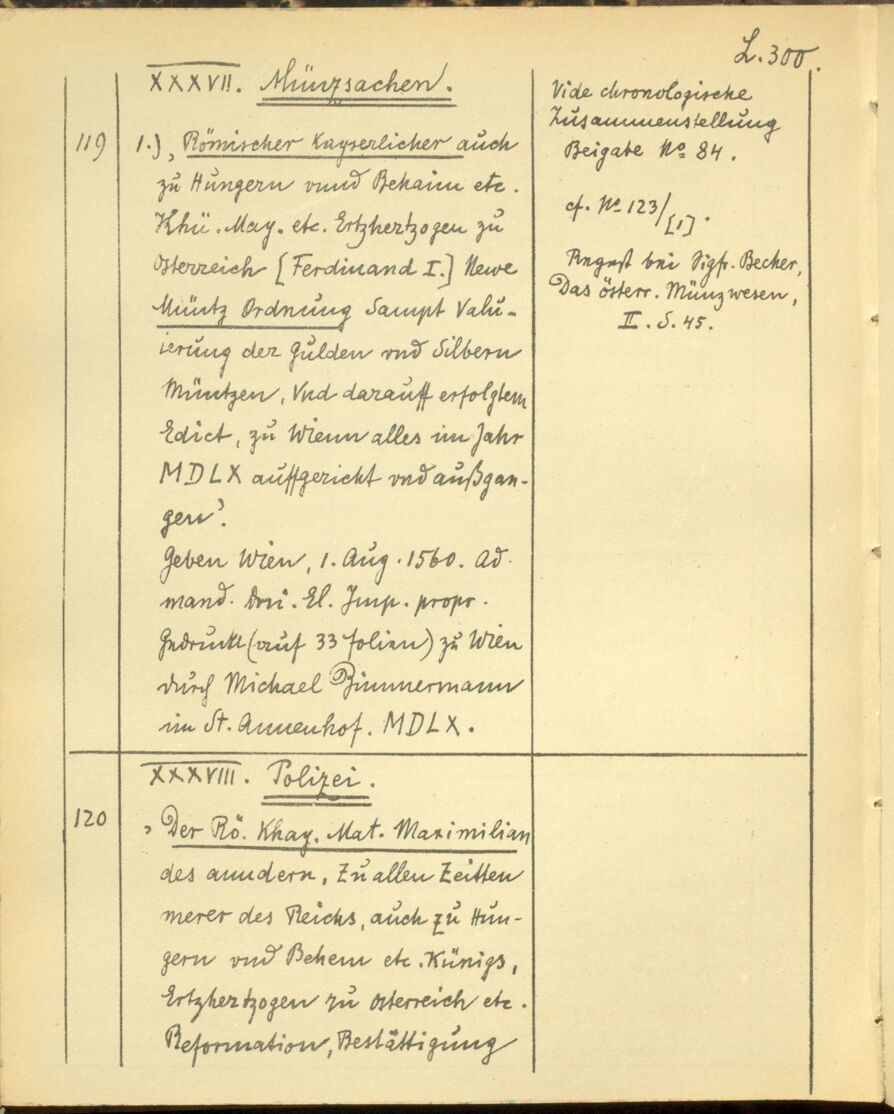 L. 300.
XXXVII. Münzsachen.
119
1.) ‚Römischer Kayserlicher auch
zu Hungern vnnd Behaim etc.
Khü. May. etc. Ertzhertzogen zu
Osterreich [Ferdinand I.] Newe
Müntz Ordnung Sampt Valu-
ierung der Gulden vnd Silbern
Müntzen, Vnd darauff erfolgtem
Edict, zu Wienn alles im Jahr
MDLX auffgericht vnd außgan-
gen’.
Geben Wien, 1. Aug. 1560. Ad
mand. Dni. El. Imp. propr.
Gedruckt (auf 33 folien) zu Wien
durch Michael Zimmermann
im St. Annenhof. MDLX.
Vide chronologische
Zusammenstellung
Beigabe No 84.
cf. No 123/[1].
Regest bei Sigfr. Becker,
Das österr. Münzwesen,
II. S. 45.
XXXVIII. Polizei.
120
‚Der Rö. Khay. Mat. Maximilian
des anndern, Zu allen Zeitten
merer des Reichs, auch zu Hun-
gern vnd Behem etc. Künigs,
Ertzhertzogen zu Osterreich etc.
Reformation, Bestättigung